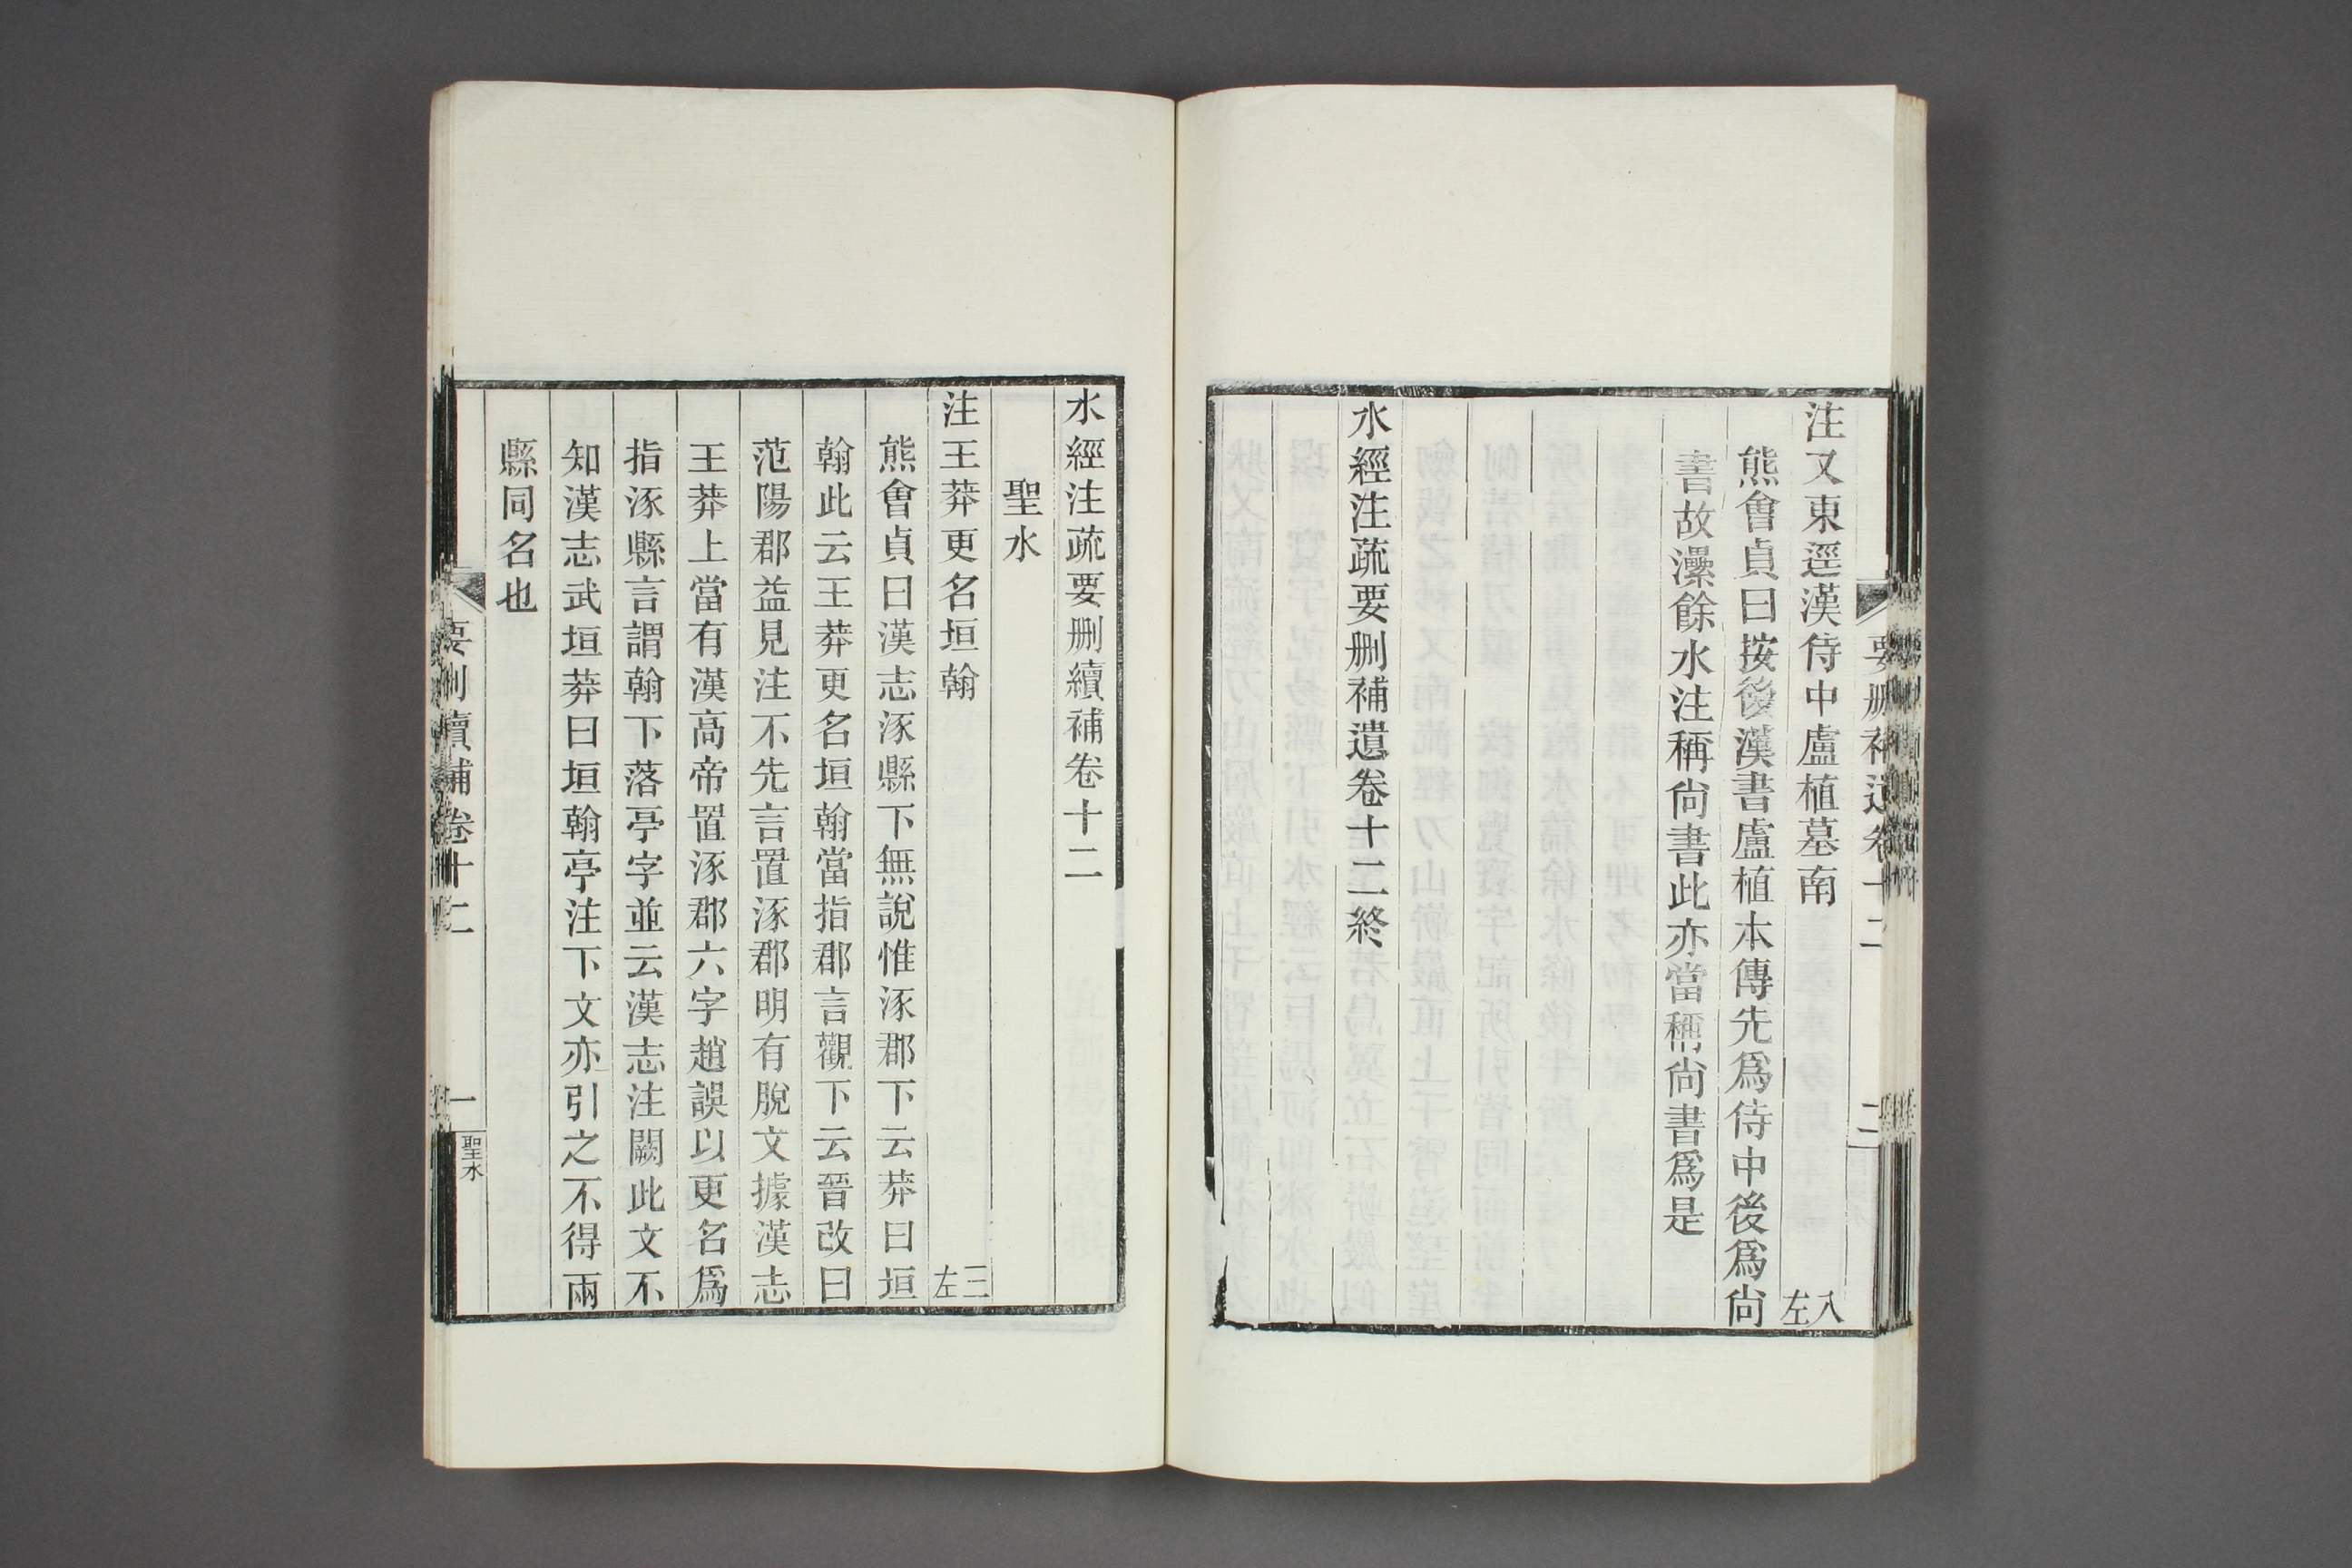 要删補遺卷十二
二
注又東逕漢侍中盧植墓南
八左
熊會貞曰按後漢書盧植本傳先爲侍中後爲尙
書故灅餘水注稱尙書此亦當稱尙書爲是
水經注疏要删補遺卷十二終
水經注疏要删續補卷十二
聖水
注王莽更名垣翰
三左
熊會貞曰漢志涿縣下無說惟涿郡下云莽曰垣
翰此云王莽更名垣翰當指郡言觀下云晉改曰
范陽郡益見注不先言置涿郡明有脫文據漢志
王莽上當有漢高帝置涿郡六字趙誤以更名爲
指涿縣言謂翰下落亭字並云漢志注闕此文不
知漢志武垣莽曰垣翰亭注下文亦引之不得兩
縣同名也
要删續補卷十二
一
聖水